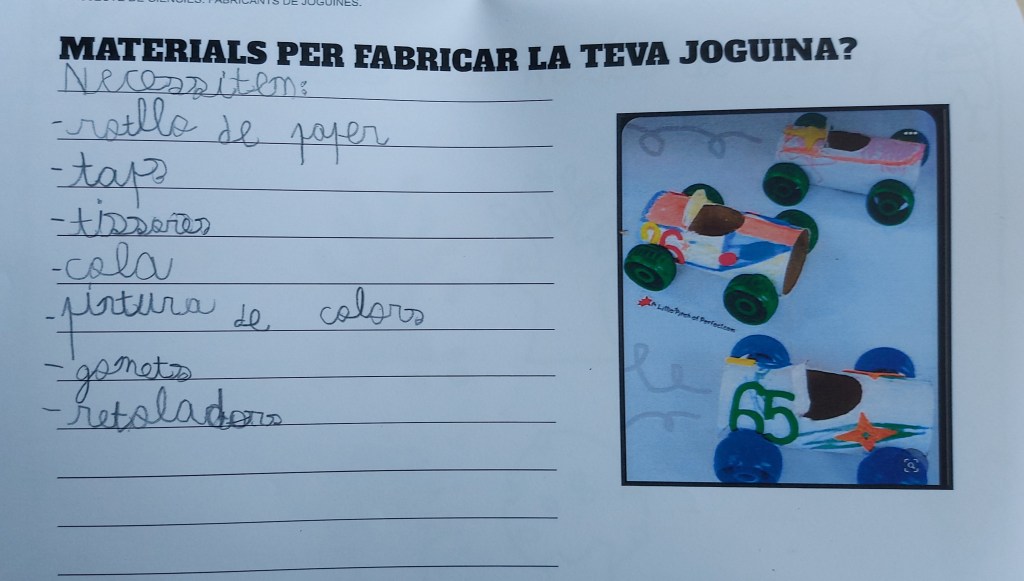 DE CIÈNCIES. FABRICANTS DE JOGUINES.
MATERIALS PER FABRICAR LA TEVA JOGUINA?
Necessitem:
- rotllo de paper
- taps
- tissores
- cola
- pintura de colors
- gomets
- retoladors
26
A Little Pinch of Perfect.com
65